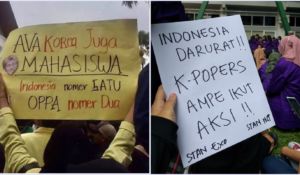 AVA KOREA JUGA
MAHASISWA
Indonesia nomer SATU
OPPA nomer Dua
INDONESIA
DARURAT!!
K-POPERS
AMPE IKUT
AKSI !!
STAN EXO
STAN NCT